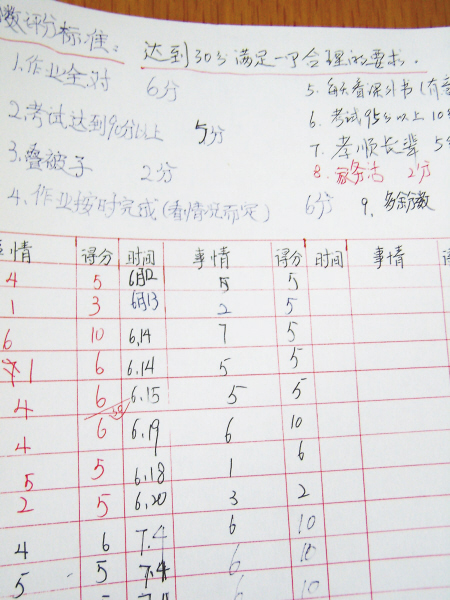 数评分标准: 达到30分满足一个合理的要求.
1.作业全对 6分 5.每天看课外书(有
2.考试达到90分以上 5分 6.考试95分以上10
3.叠被子 2分 7.孝顺长辈 5
8.家务活 2分
4.作业按时完成(看情况而定) 6分 9.多余分数
事情 得分 时间 事情 得分 时间 事情 得
4 5 6月12 5 5
1 3 6月13 2 5
6 10 6.14 7 5
1 6 6.14 5 5
4 6 6.15 5 5
4 6 6.19 6 10
5 5 6.18 1 6
2 5 6.20 3 2
4 6 7.4 6 10
5 5 7.4 6 10
6 10